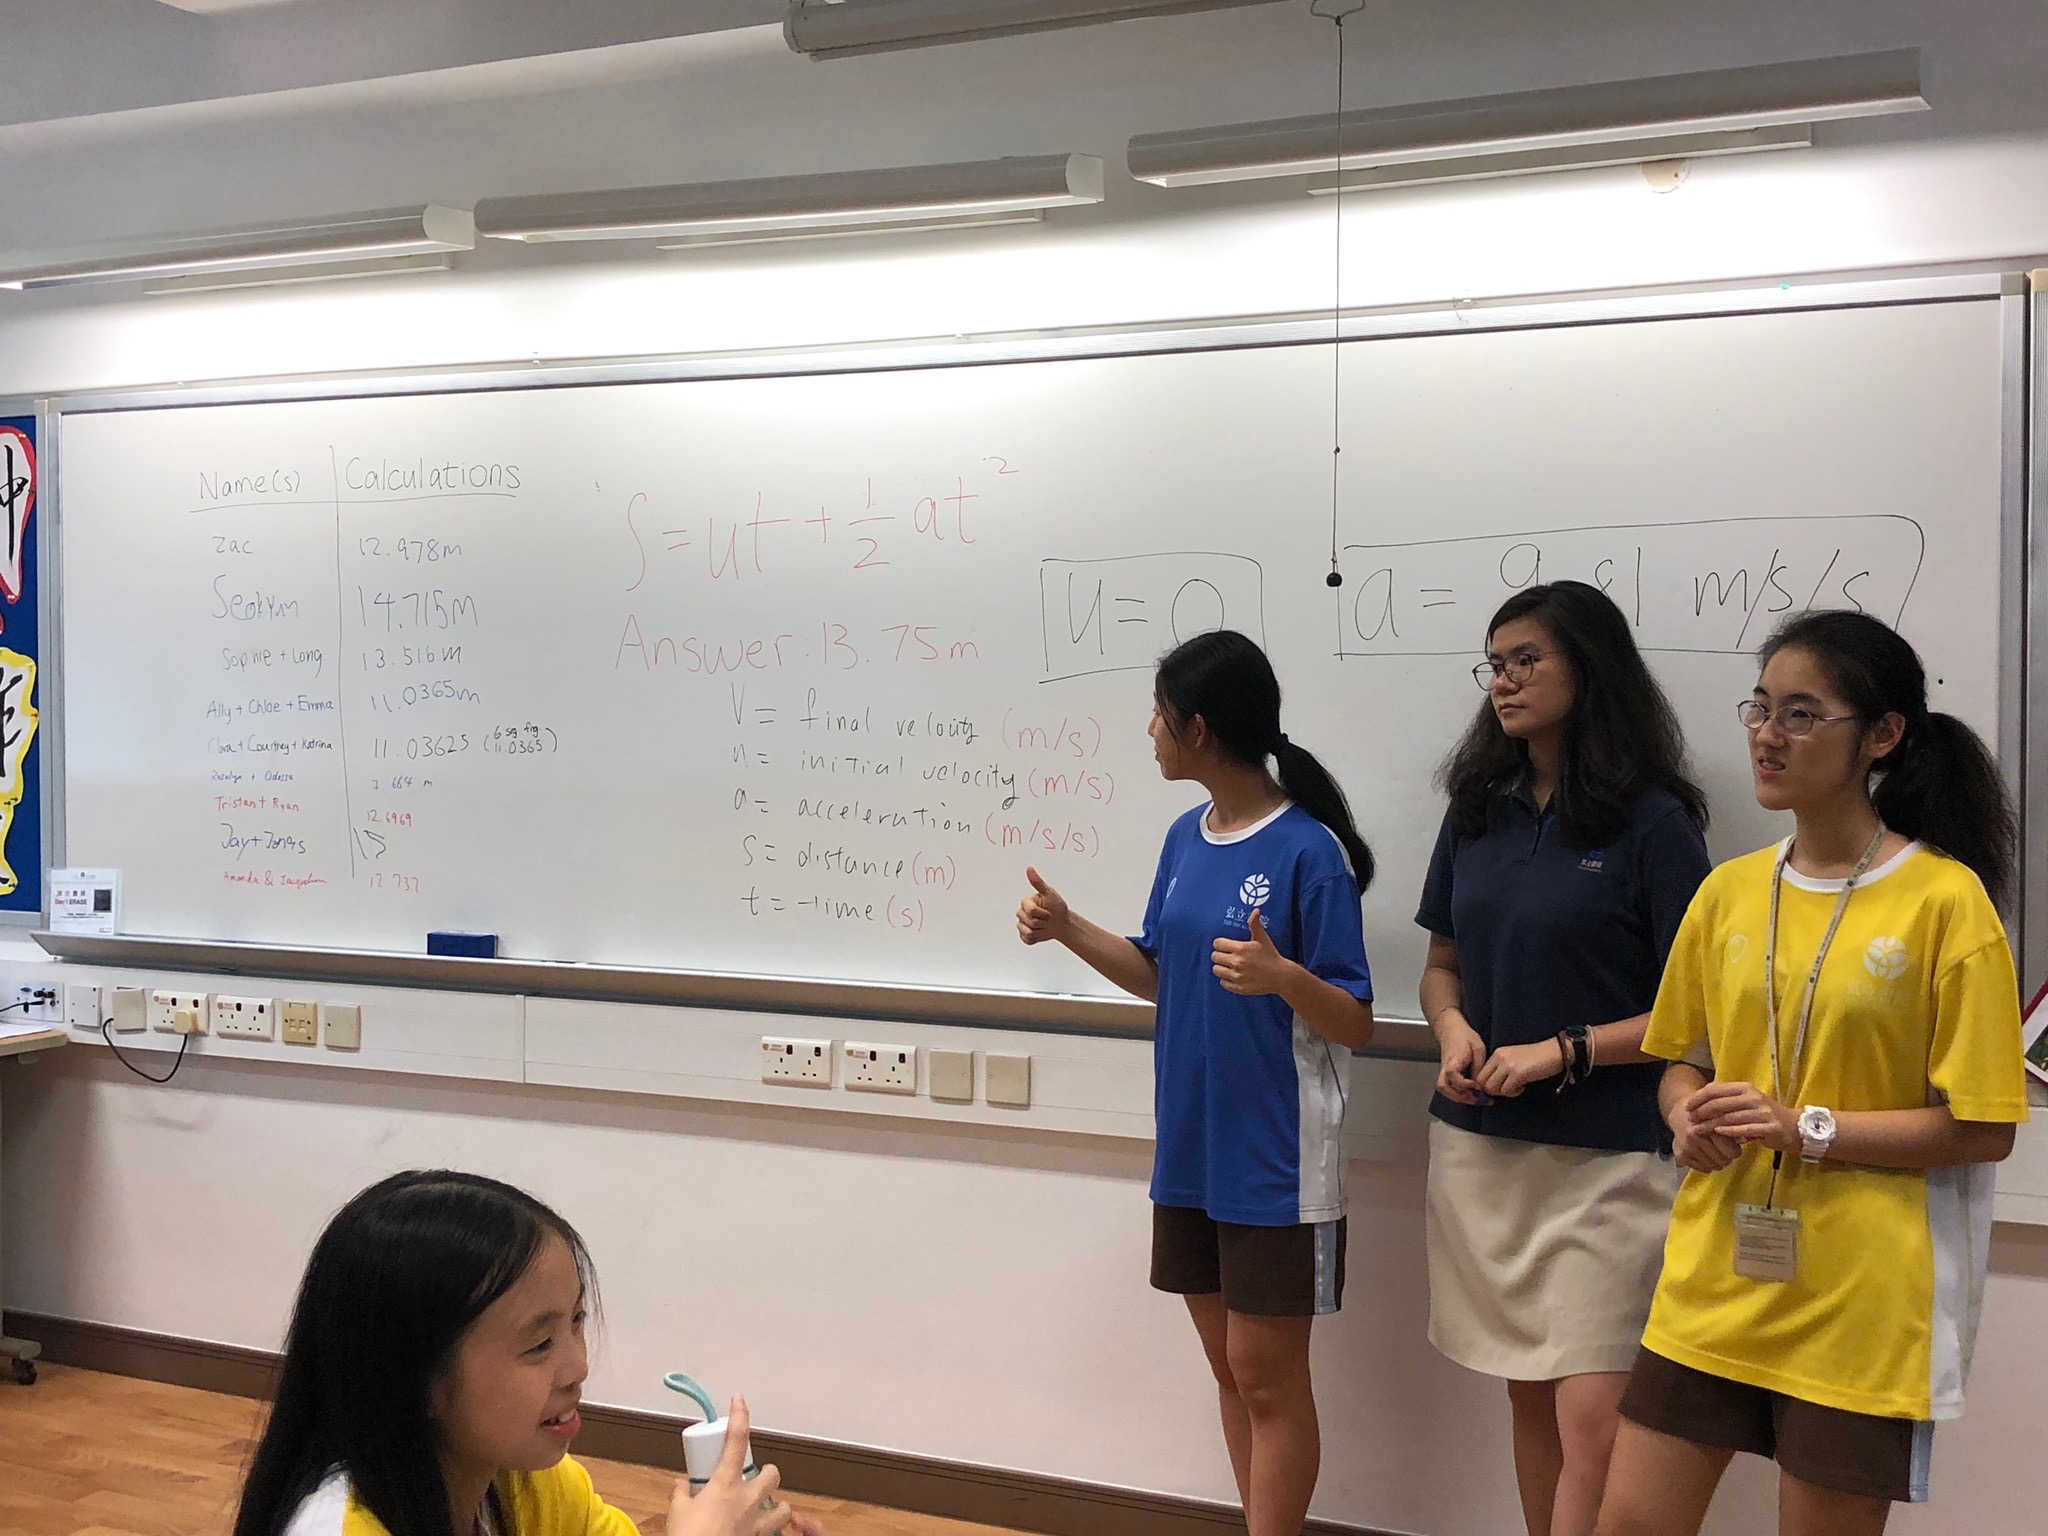 Name(s) Calculations
Zac 12.978m
Seokyun 14.715m
Sophie + Long 13.516m
Ally + Chloe + Emma 11.0365m
Clara + Courtney + Katrina 11.03625 (6 sig fig 11.0365)
Rosalyn + Odessa 664 m
Tristan + Ryan 12.6969
Jay + 15
Amanda & Jacquelinn 12.732
S = ut + 1/2 at²
Answer: 13.75m
V = final velocity (m/s)
u = initial velocity (m/s)
a = acceleration (m/s/s)
S = distance (m)
t = time (s)
u = 0
a = 9.81 m/s/s
Don't ERASE
弘立書院